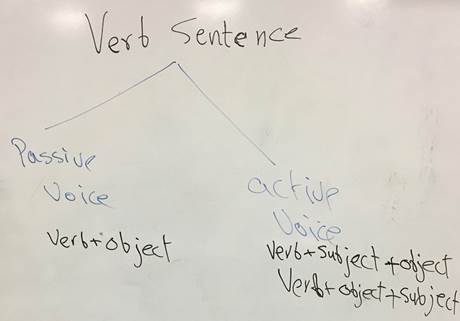 Verb Sentence
Passive
Voice
Verb+object
active
Voice
Verb+subject+object
Verb+object+subject